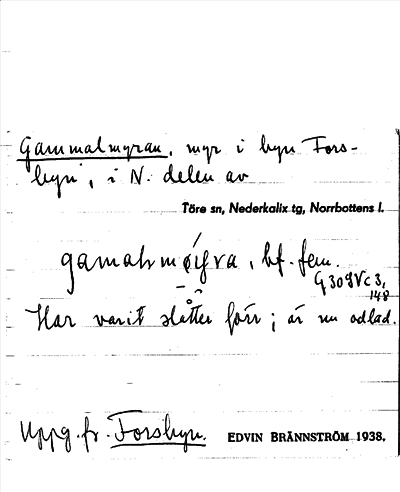 Gammalmyran, myr i byn Fors-
byn, i N. delen av
Töre sn, Nederkalix tg, Norrbottens l.
bf. fem.
G309Vc3,
148
Har varit slåtter förr; är nu odlad.
Uppg. fr. Forsbyn. EDVIN BRÄNNSTRÖM 1938.